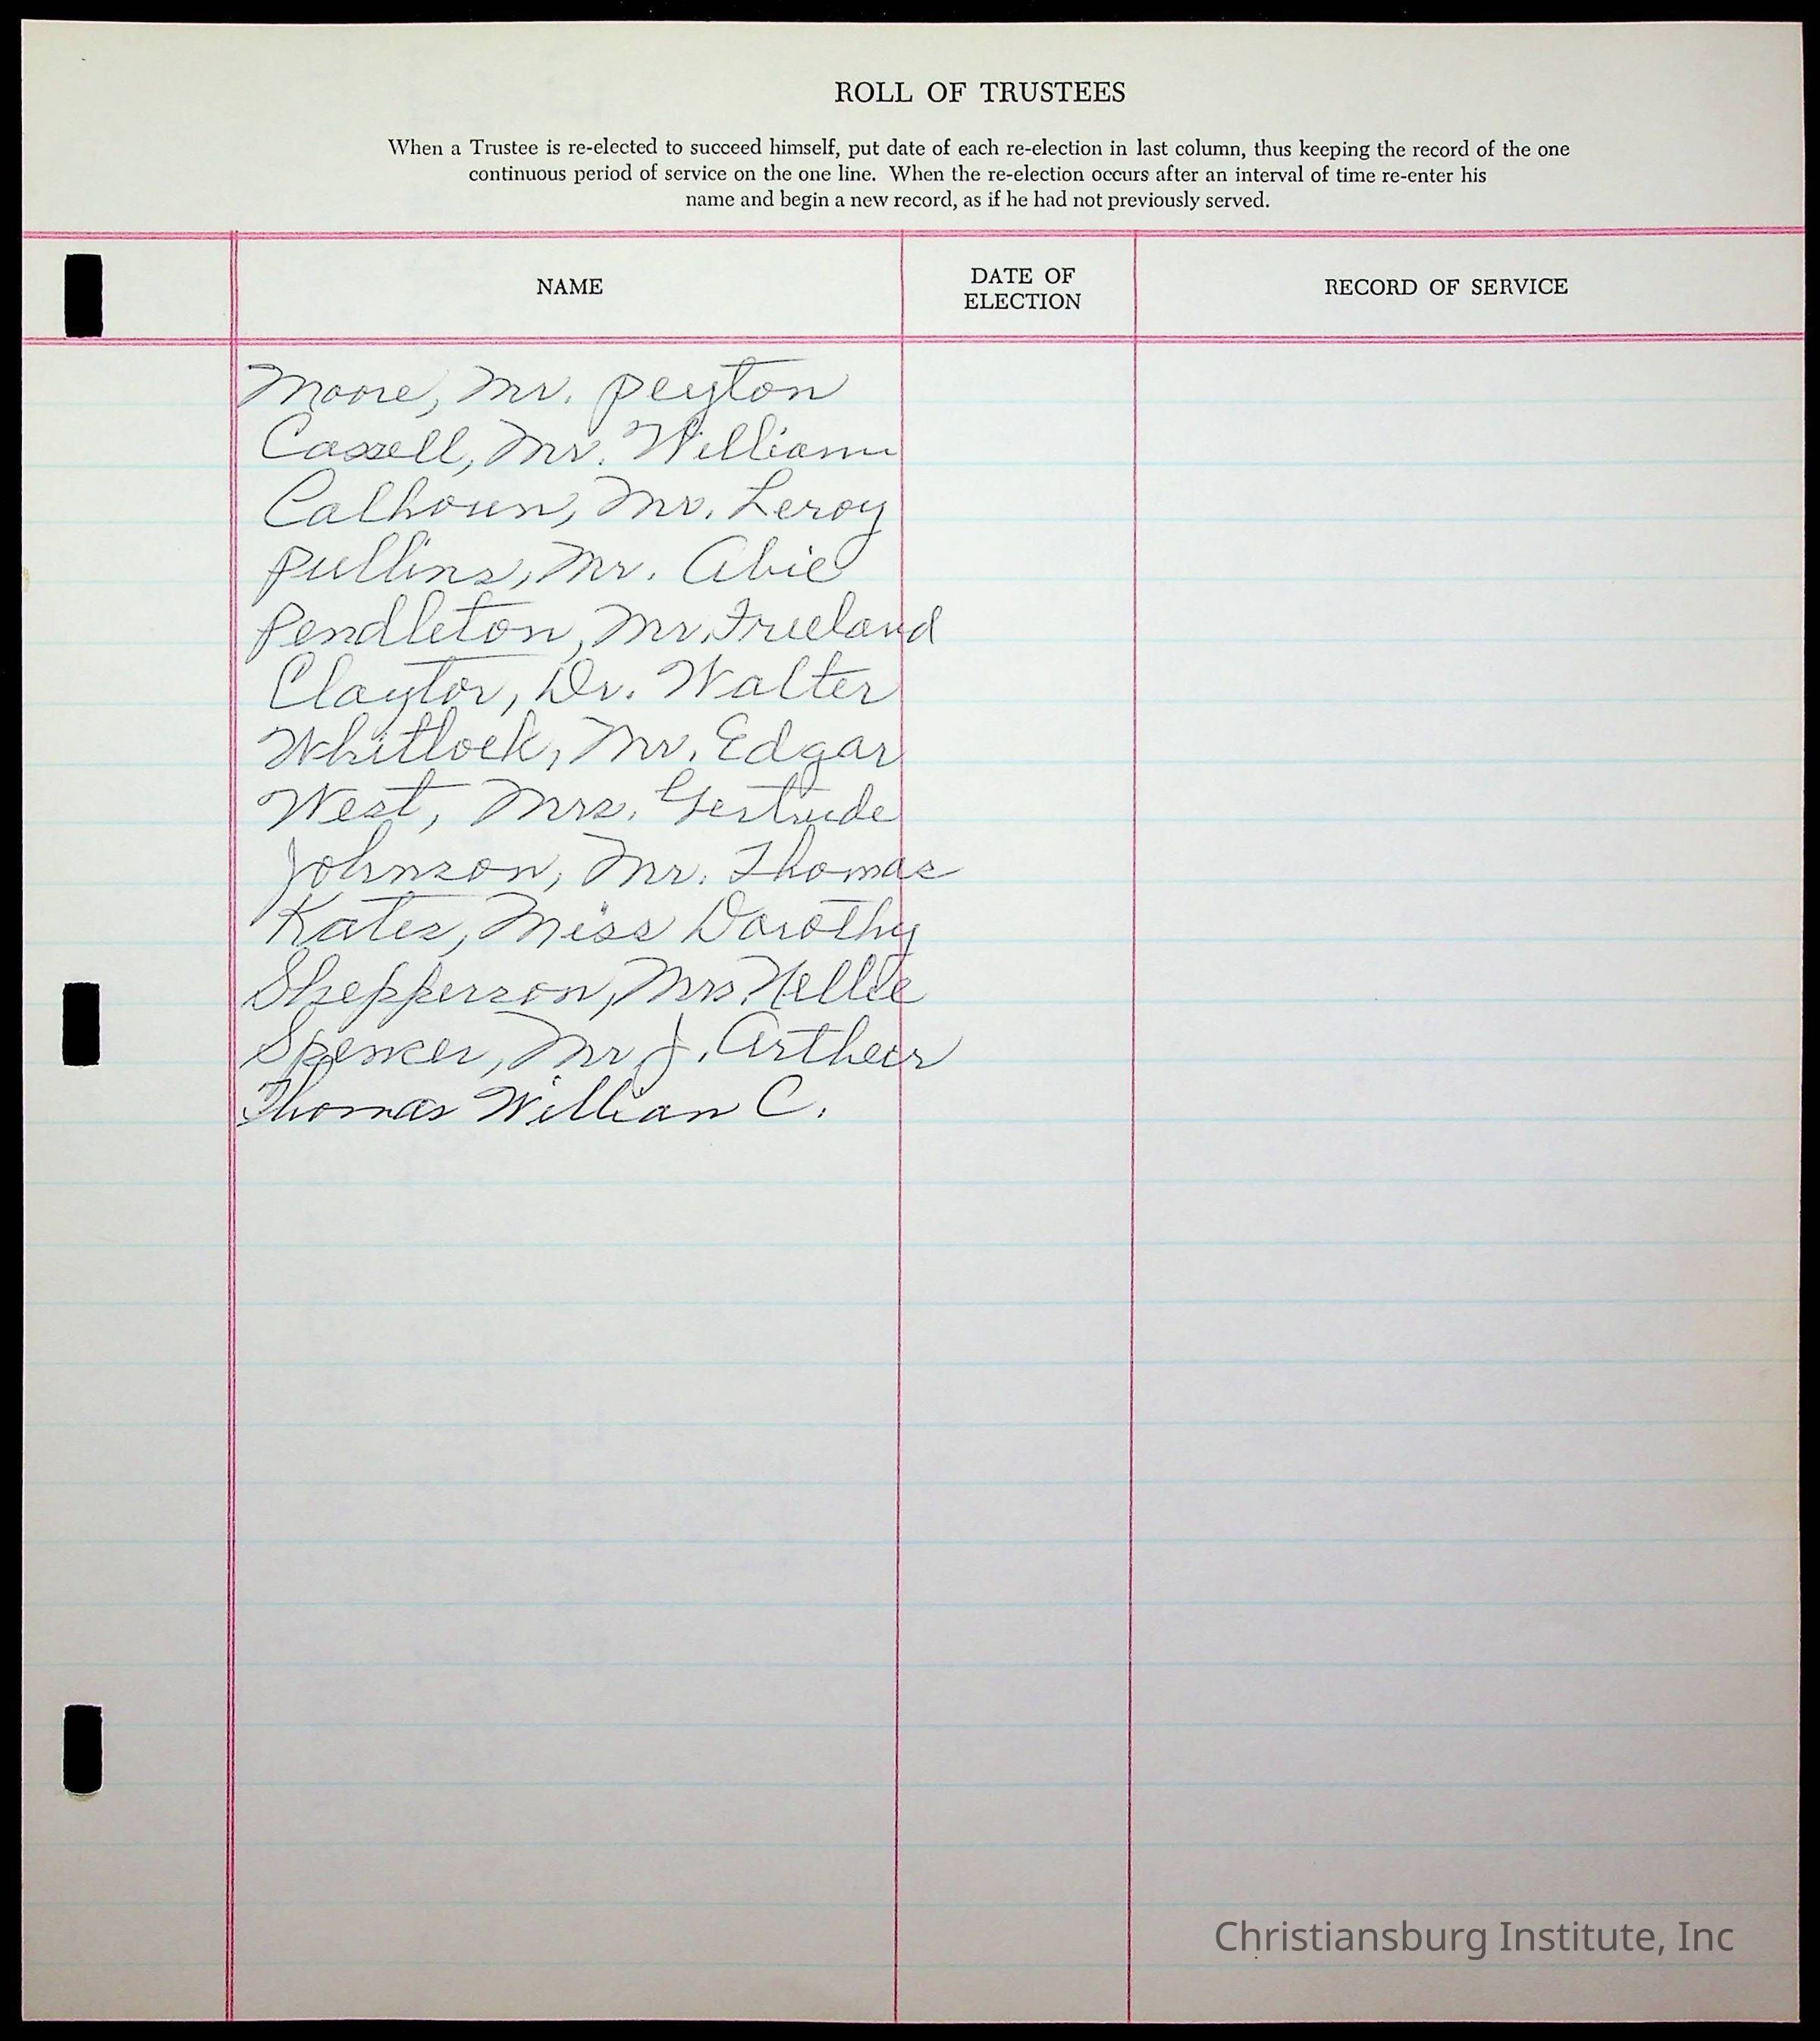 ROLL OF TRUSTEES
When a Trustee is re-elected to succeed himself, put date of each re-election in last column, thus keeping the record of the one
continuous period of service on the one line. When the re-election occurs after an interval of time re-enter his
name and begin a new record, as if he had not previously served.
NAME DATE OF ELECTION RECORD OF SERVICE
Moore, Mr. Peyton
Cassell, Mr. William
Calhoun, Mr. Leroy
Pullins, Mr. Abie
Pendleton, Mr. Freeland
Claytor, Dr. Walter
Whitlock, Mr. Edgar
West, Mrs. Gertrude
Johnson, Mr. Thomas
Kates, Miss Dorothy
Shepperson, Mrs. Nellie
Spencer, Mr J. Arthur
Thomas William C.
Christiansburg Institute, Inc